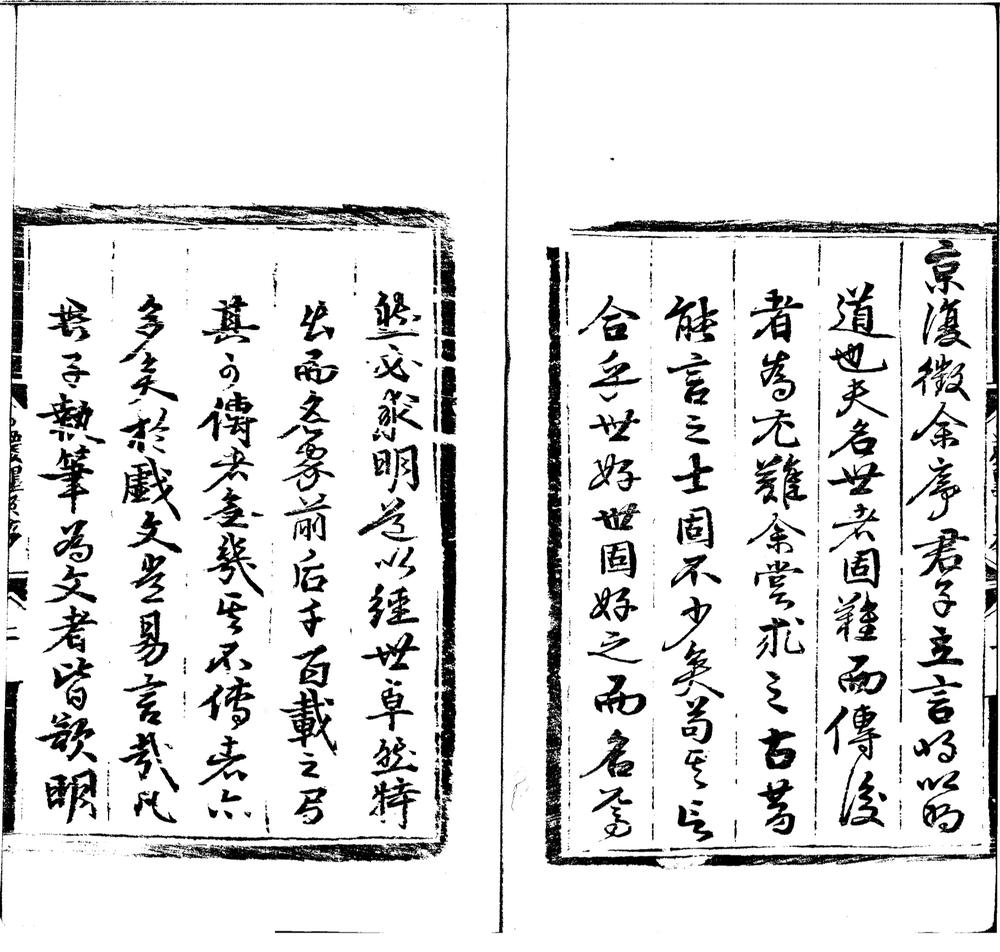 京復徵余序君子立言將以明
道也夫名世者固難而傳後
者為尤難余嘗求之古昔
能言之士固不少矣苟其言
合乎世好世固好之而名
然必求明道以經世卓然特
出而名家前后千百載之間
其可傳者無幾其不傳者亦
多矣於戲文豈易言哉凡
子執筆為文者皆欲明